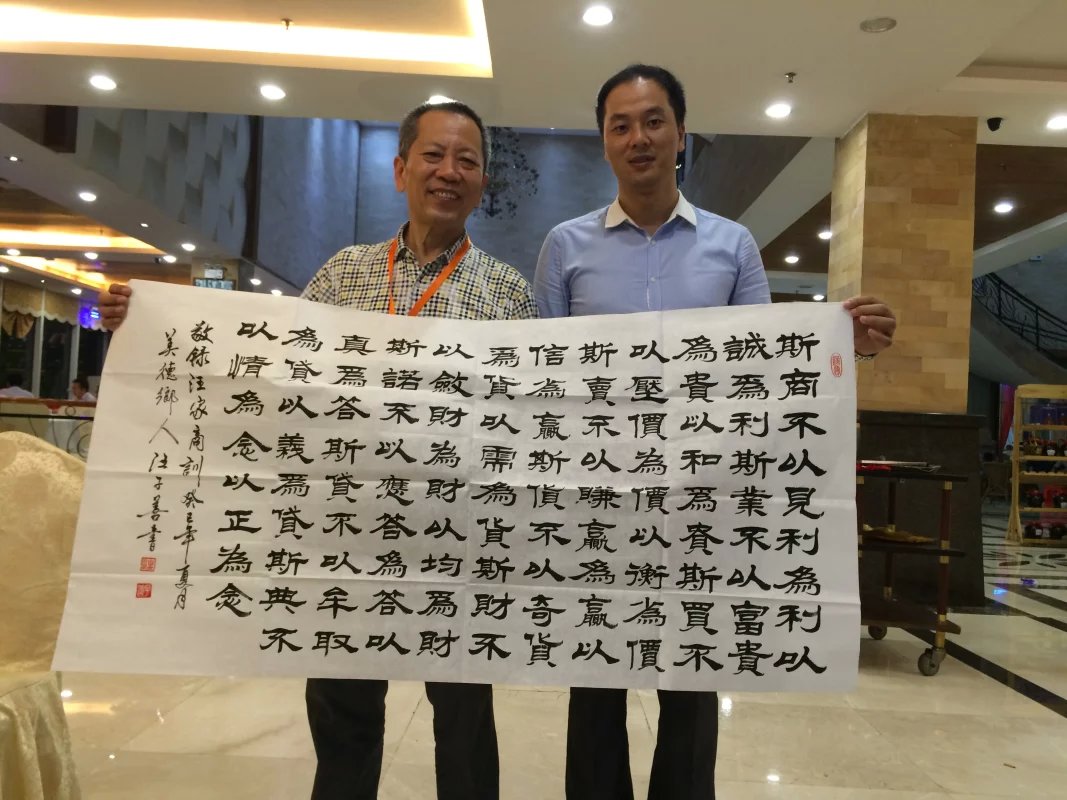 斯商不以見利為利以
誠為利斯業不以富貴
為貴以和為貴斯買不
以壓價為價以衡為價
斯賣不以賺贏為贏以
信為贏斯貨不以奇貨
為貨以需為貨斯財不
以斂財為財以均為財
斯諾不以應答為答以
真為答斯貸不以牟取
為貸以義為貸斯典不
以情為念以正為念
敬錄汪家商訓癸巳年夏月
德鄉人汪子善書